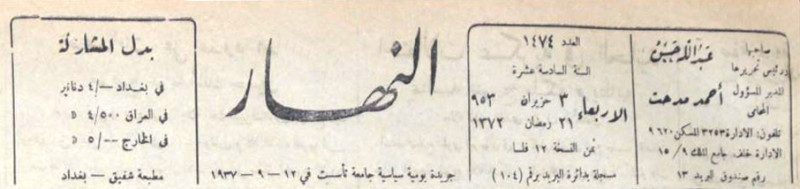 صاحبها
ورئيس تحريرها
عبد الله حسين
المدير المسؤول
المحامي
أحمد مدحت
تلفون: الادارة ٣٢٥٣ المسكن ٩٦٢٠
الادارة خلف جامع الملك ٩ / ١٥
رقم صندوق البريد ١٣
العدد ١٤٧٤
السنة السادسة عشرة
الاربعاء ٣ حزيران ٩٥٣
٢١ رمضان ١٣٧٢
ثمن النسخة ١٢ فلسا
مسجلة بدائرة البريد برقم (١٠٤)
النهار
جريدة يومية سياسية جامعة تأسست في ١٢ – ٩ – ١٩٣٧
بدل المشاركة
في بغداد ـ/٤ دنانير
في العراق ٤/٥٠٠ »
في الخارج ـ/٥ »
مطبعة شفيق – بغداد